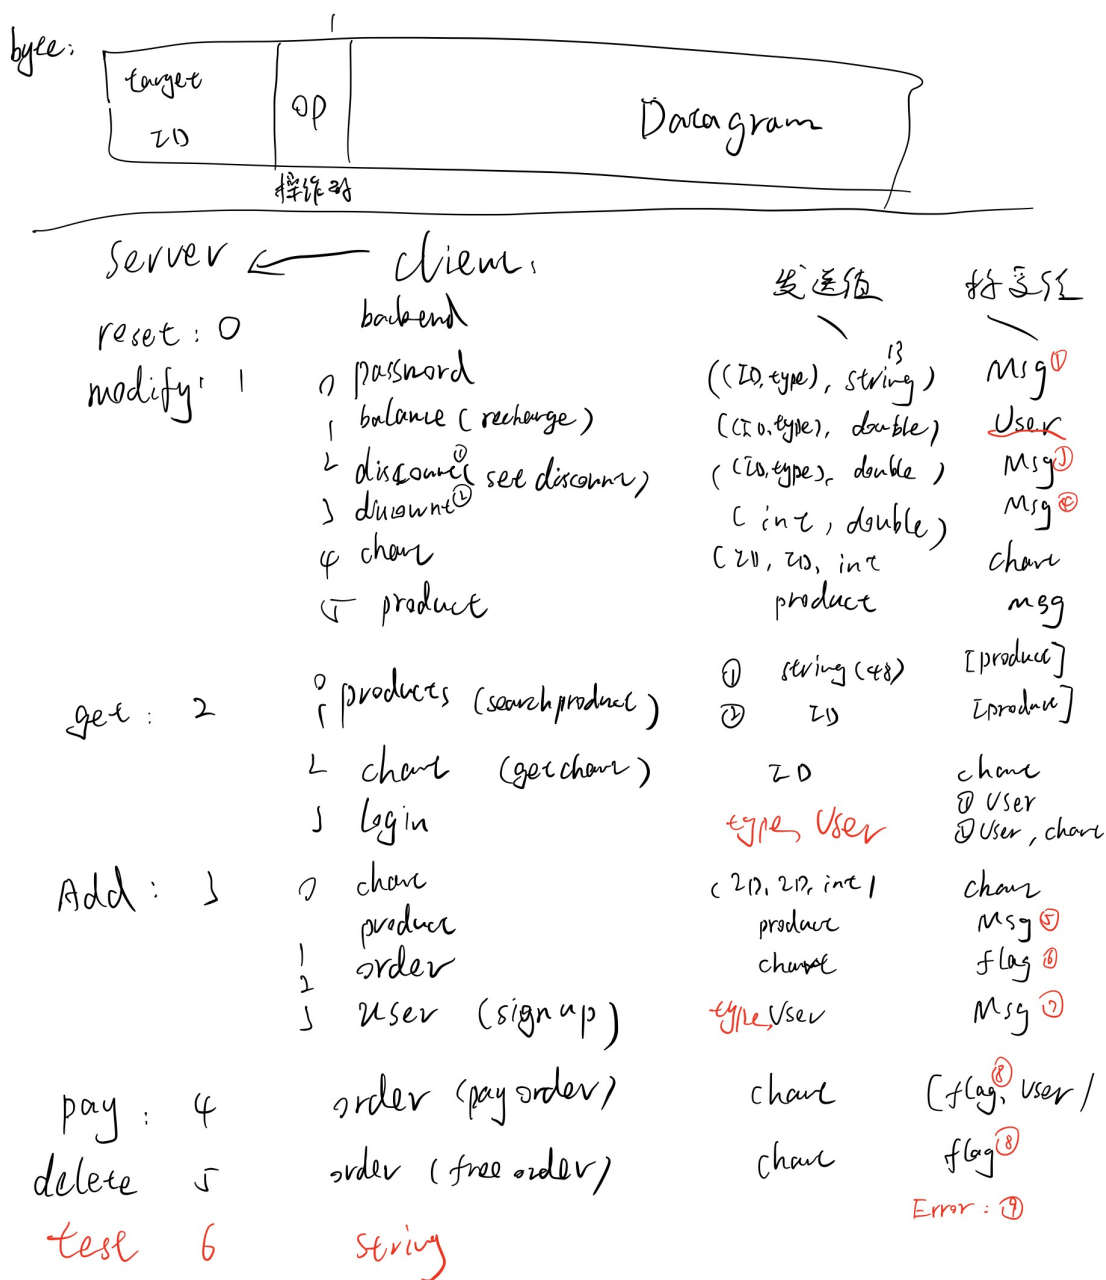 1
byte:
target
ID
OP
Datagram
操作码
server ← client:
发送值 接受值
backend
reset: 0
modify: 1
0 password ((ID, type), string) 13 Msg ①
1 balance (recharge) ((ID, type), double) User
2 discount① (set discount) ((ID, type), double) Msg ③
3 discount② (int, double) Msg ④
4 chart (ID, ID, int chart
5 product product msg
get: 2
0 ① string(48) [product]
1 products (searchproduct) ② ID [product]
2 chart (getchart) ID chart
3 login type, User ① User
② User, chart
Add: 3
0 chart (ID, ID, int) chart
product product Msg ⑤
1
2 order chart flag ⑥
3 user (sign up) type, User Msg ⑦
pay: 4 order (pay order) chart (flag⑧, User)
delete 5 order (free order) chart flag⑧
Error: ⑨
test 6 string